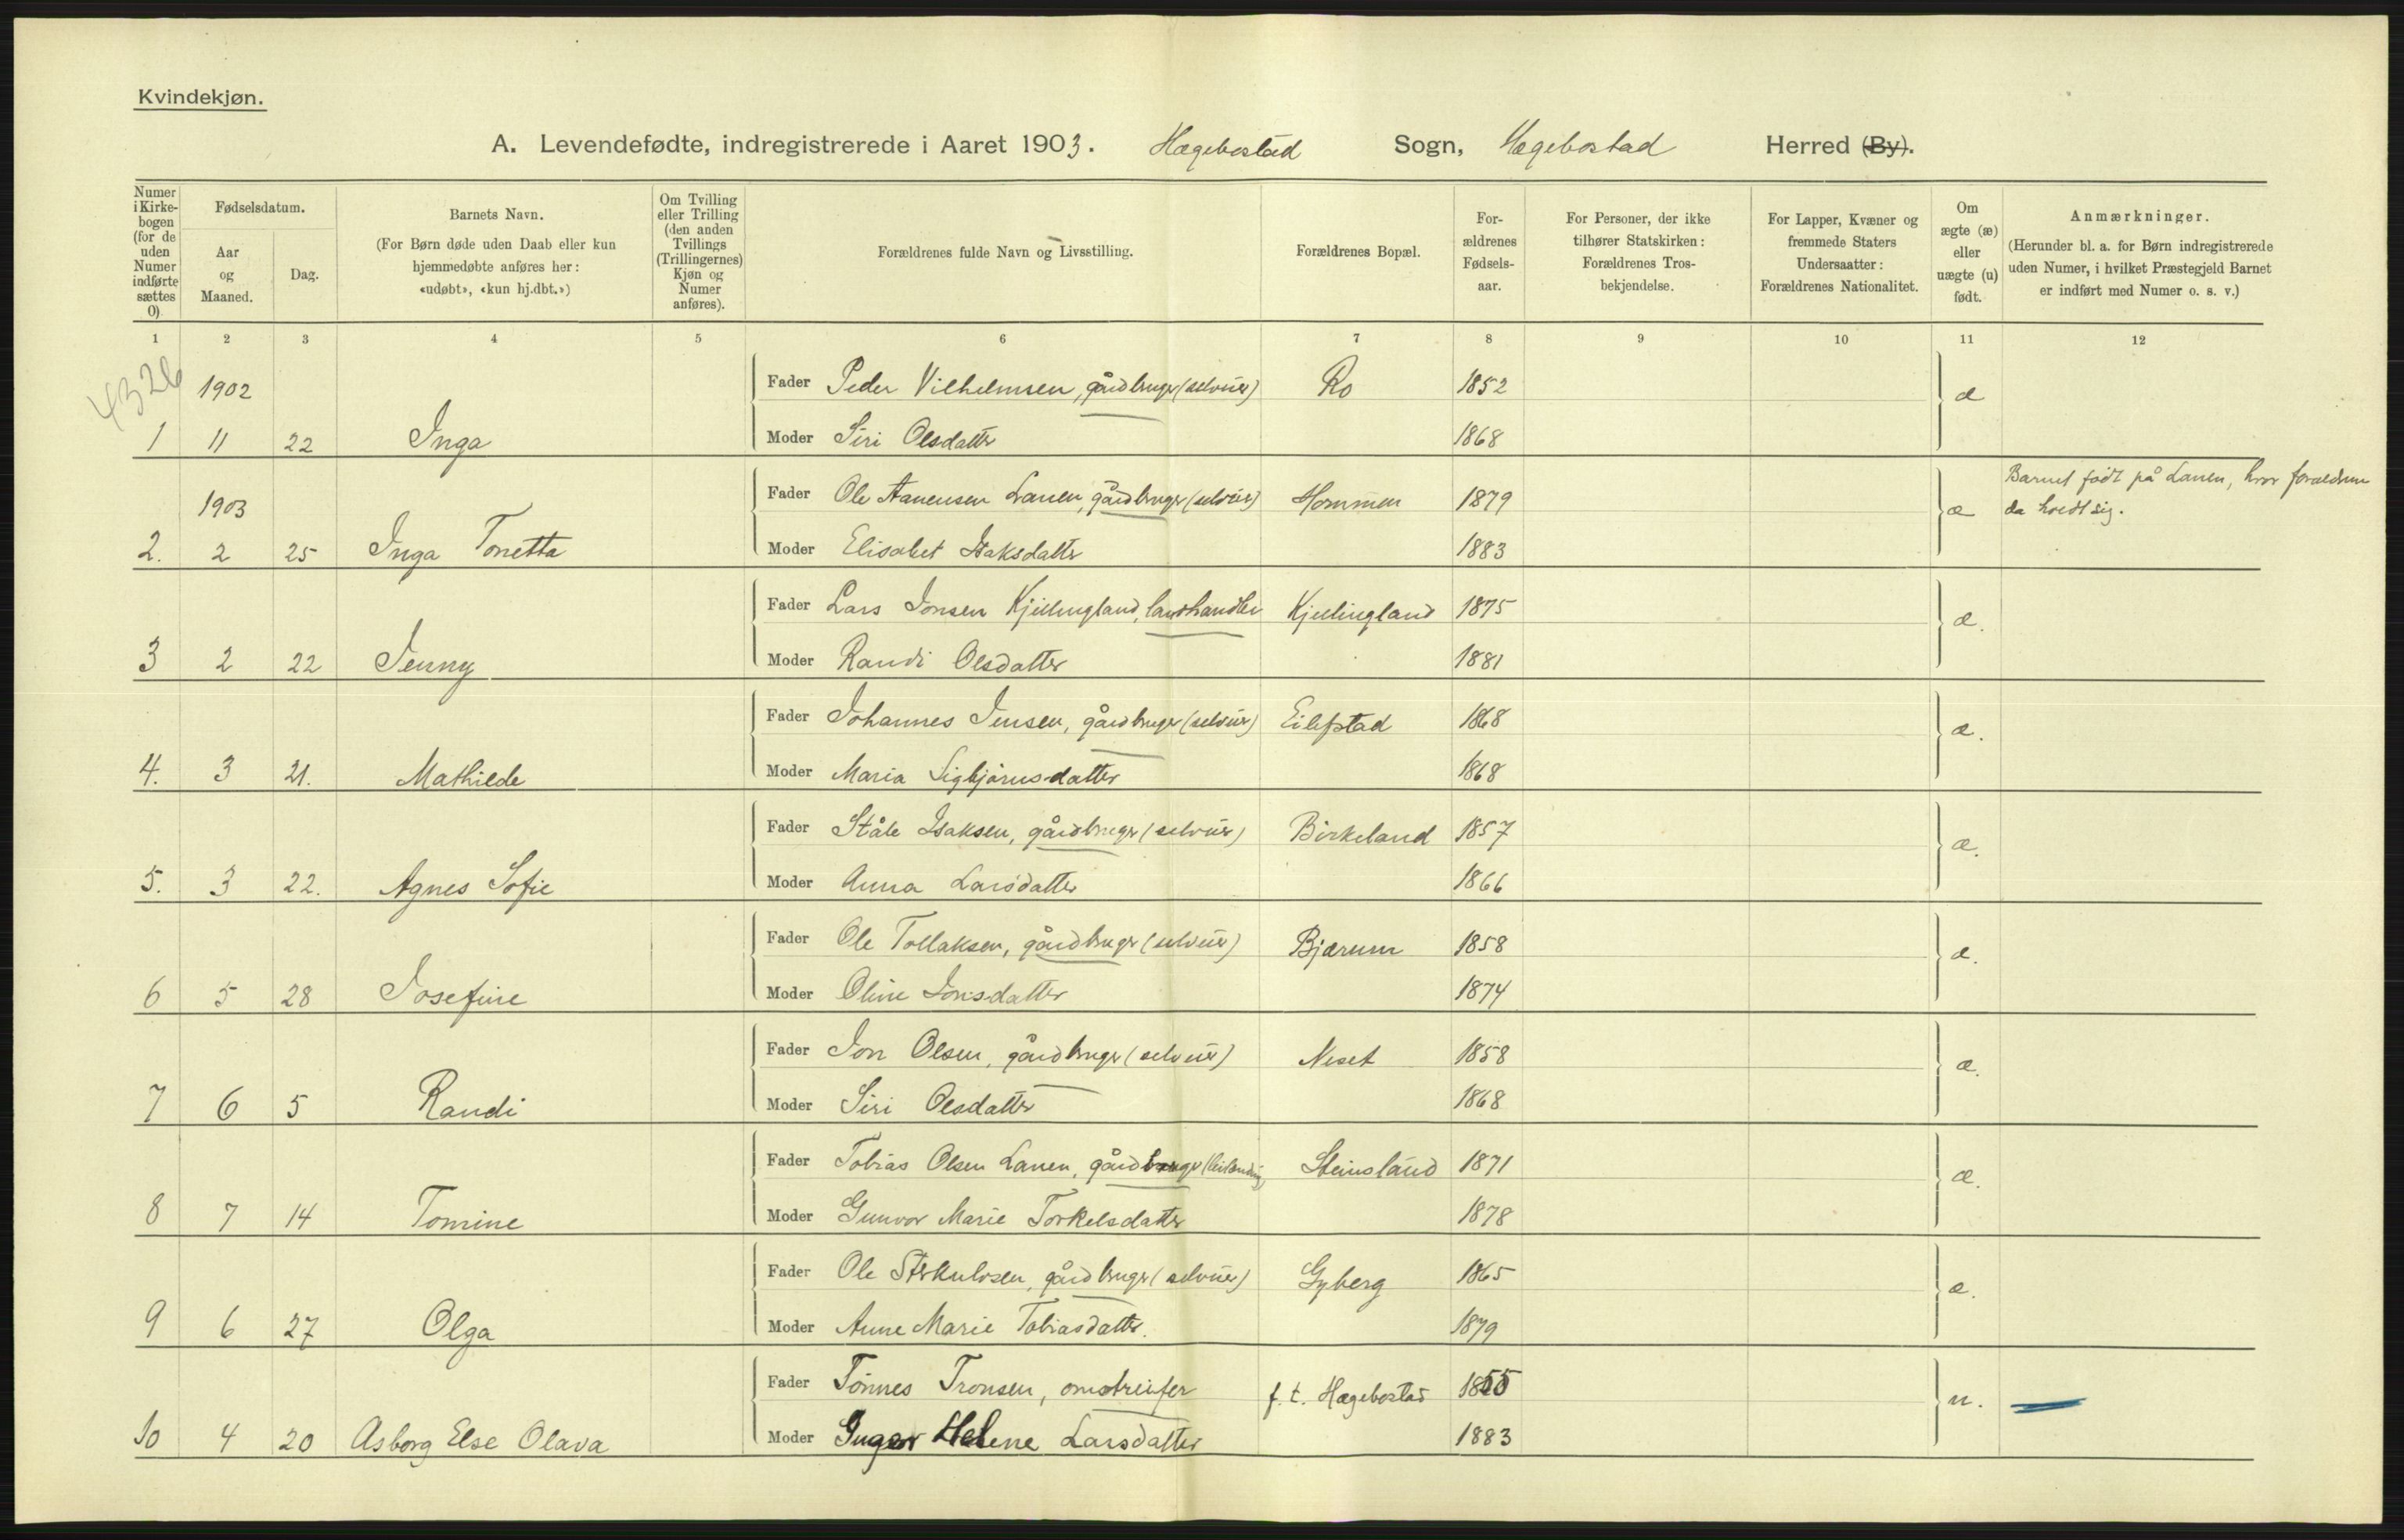 Kvindekjøn.
A. Levendefødte, indregistrerede i Aaret 1903. Hægebostad Sogn, Hægebostad Herred (By).
Numer i Kirkebogen (for de uden Numer indførte sættes 0)
Fødselsdatum.
Aar og Maaned.
Dag.
Barnets Navn.
(For Børn døde uden Daab eller kun hjemmedøbte anføres her: «udøbt», «kun hj.dbt.»)
Om Tvilling eller Trilling (den anden Tvillings (Trillingernes) Kjøn og Numer anføres).
Forældrenes fulde Navn og Livsstilling.
Forældrenes Bopæl.
Forældrenes Fødselsaar.
For Personer, der ikke tilhører Statskirken: Forældrenes Trosbekjendelse.
For Lapper, Kvæner og fremmede Staters Undersaatter: Forældrenes Nationalitet.
Om ægte (æ) eller uægte (u) født.
Anmærkninger.
(Herunder bl. a. for Børn indregistrerede uden Numer, i hvilket Præstegjeld Barnet er indført med Numer o. s. v.)
1 2 3 4 5 6 7 8 9 10 11 12
4326
1902 Fader Peder Vilhelmsen, gårdbruger (selveier) Ro 1852 æ
1 11 22 Inga Moder Siri Olsdatter 1868
Barnet født på Lauen, hvor forældrene
1903 Fader Ole Aanensen Lauen, gårdbruger (selveier) Hommen 1879 æ da hoedt sig.
2. 2 25 Inga Tonetta Moder Elisabet Isaksdatter 1883
Fader Lars Jonsen Kjellingland, landhandler Kjellingland 1875 æ.
3 2 22 Jenny Moder Randi Olsdatter 1881
Fader Johannes Jensen, gårdbruger (selveier) Eilefstad 1868 æ.
4. 3 21. Mathilde Moder Maria Sigbjørnsdatter 1868
Fader Ståle Isaksen, gårdbruger (selveier) Birkeland 1857 æ.
5. 3 22. Agnes Sofie Moder Anna Larsdatter 1866
Fader Ole Tollaksen, gårdbruger (selveier) Bjærum 1858 æ.
6 5 28 Josefine Moder Oline Jonsdatter 1874
Fader Jon Olsen, gårdbruger (selveier) Neset 1858 æ.
7 6 5 Randi Moder Siri Olsdatter 1868
Fader Tobias Olsen Lauen, gårdbruger (leilending) Steinsland 1871 æ.
8 7 14 Tomine Moder Gunvor Marie Torkelsdatter 1878
Fader Ole gårdbruger (selveier) Gyberg 1865 æ.
9 6 27 Olga Moder Anne Marie Tobiasdatter. 1879
Fader Tønnes Tronsen, omstreifer f. t. Hægebostad 1855 u.
10 4 20 Asborg Else Olava Moder Inger Helene Larsdatter 1883